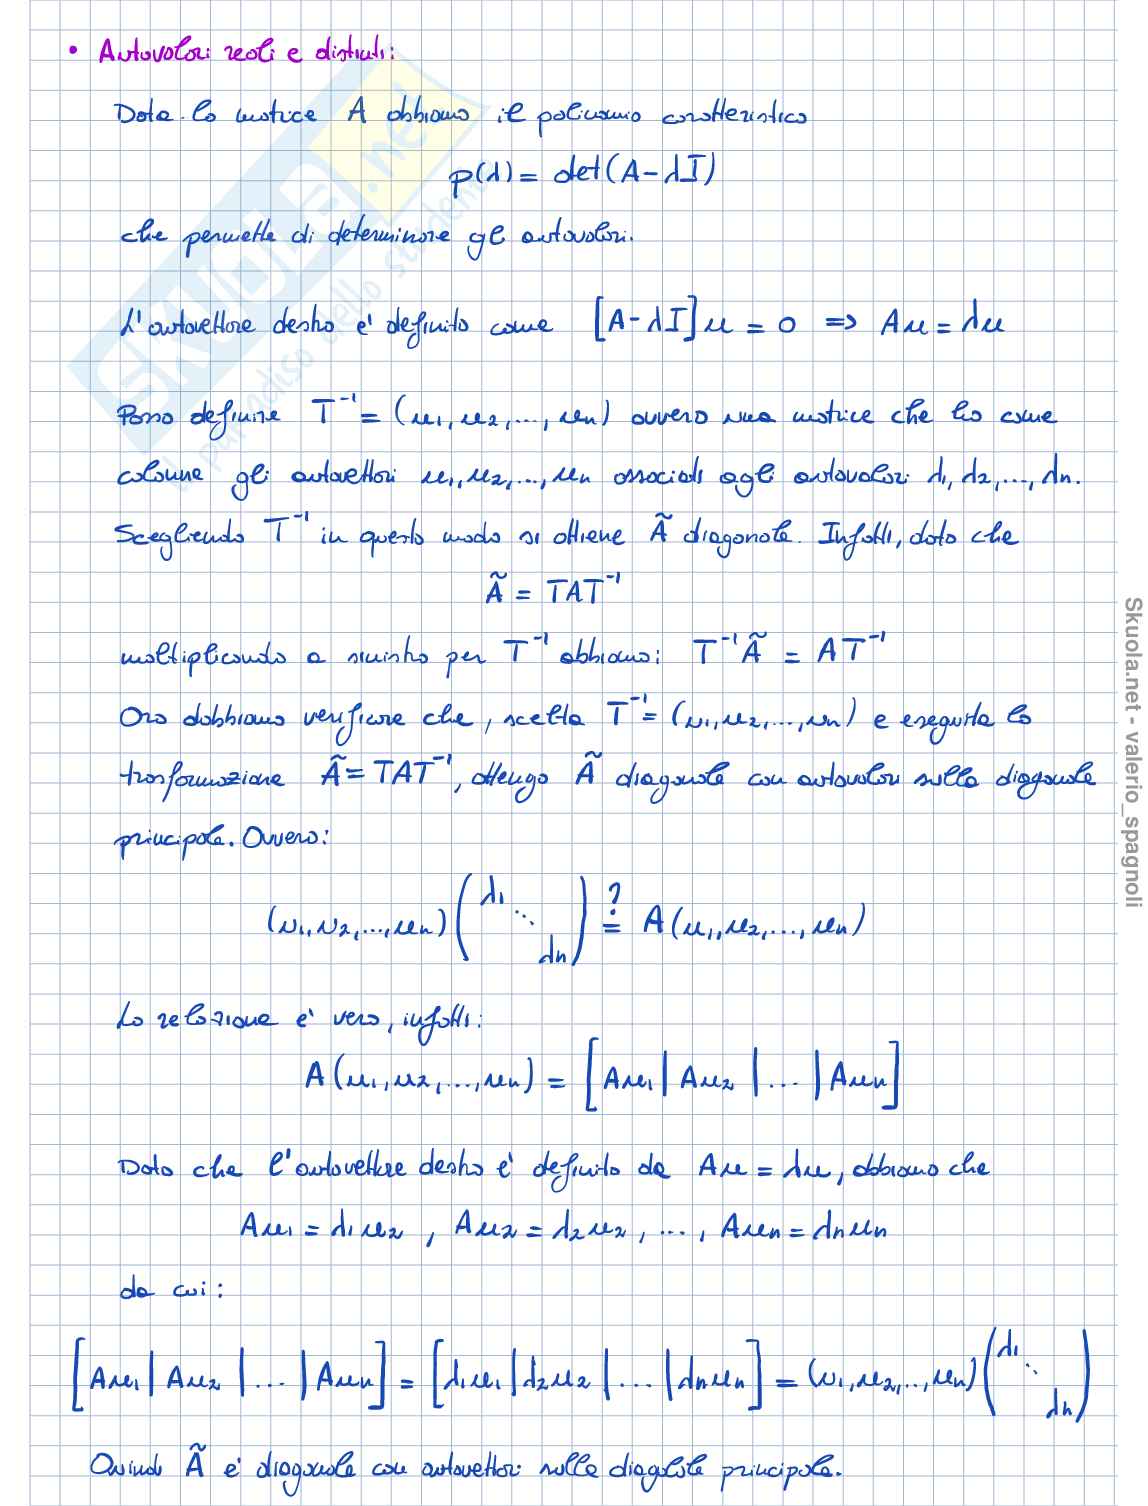 • Autovalori reali e distinti:
Data la matrice A abbiamo il polinomio caratteristico
p(λ) = det(A - λI)
che permette di determinare gli autovalori.
L'autovettore destro e' definito come [A - λI]u = 0 => Au = λu
Posso definire T⁻¹ = (u₁, u₂, ..., uₙ) ovvero una matrice che ha come
colonne gli autovettori u₁, u₂, ..., uₙ associati agli autovalori λ₁, λ₂, ..., λₙ.
Scegliendo T⁻¹ in questo modo si ottiene Ã diagonale. Infatti, dato che
Ã = TAT⁻¹
moltiplicando a sinistra per T⁻¹ abbiamo: T⁻¹Ã = AT⁻¹
Ora dobbiamo verificare che, scelta T⁻¹ = (u₁, u₂, ..., uₙ) e eseguita la
trasformazione Ã = TAT⁻¹, ottengo Ã diagonale con autovalori sulla diagonale
principale. Ovvero:
(u₁, u₂, ..., uₙ) (λ₁ ⋱ λₙ) ≟ A(u₁, u₂, ..., uₙ)
La relazione e' vera, infatti:
A(u₁, u₂, ..., uₙ) = [Au₁ | Au₂ | ... | Auₙ]
Dato che l'autovettore destro e' definito da Au = λu, abbiamo che
Au₁ = λ₁u₂ , Au₂ = λ₂u₂ , ... , Auₙ = λₙuₙ
da cui:
[Au₁ | Au₂ | ... | Auₙ] = [λ₁u₁ | λ₂u₂ | ... | λₙuₙ] = (u₁, u₂, .., uₙ) (λ₁ ⋱ λₙ)
Quindi Ã e' diagonale con autovettori sulla diagolale principale.
SKUOLA.net
il paradiso dello studente
Skuola.net - valerio_spagnoli